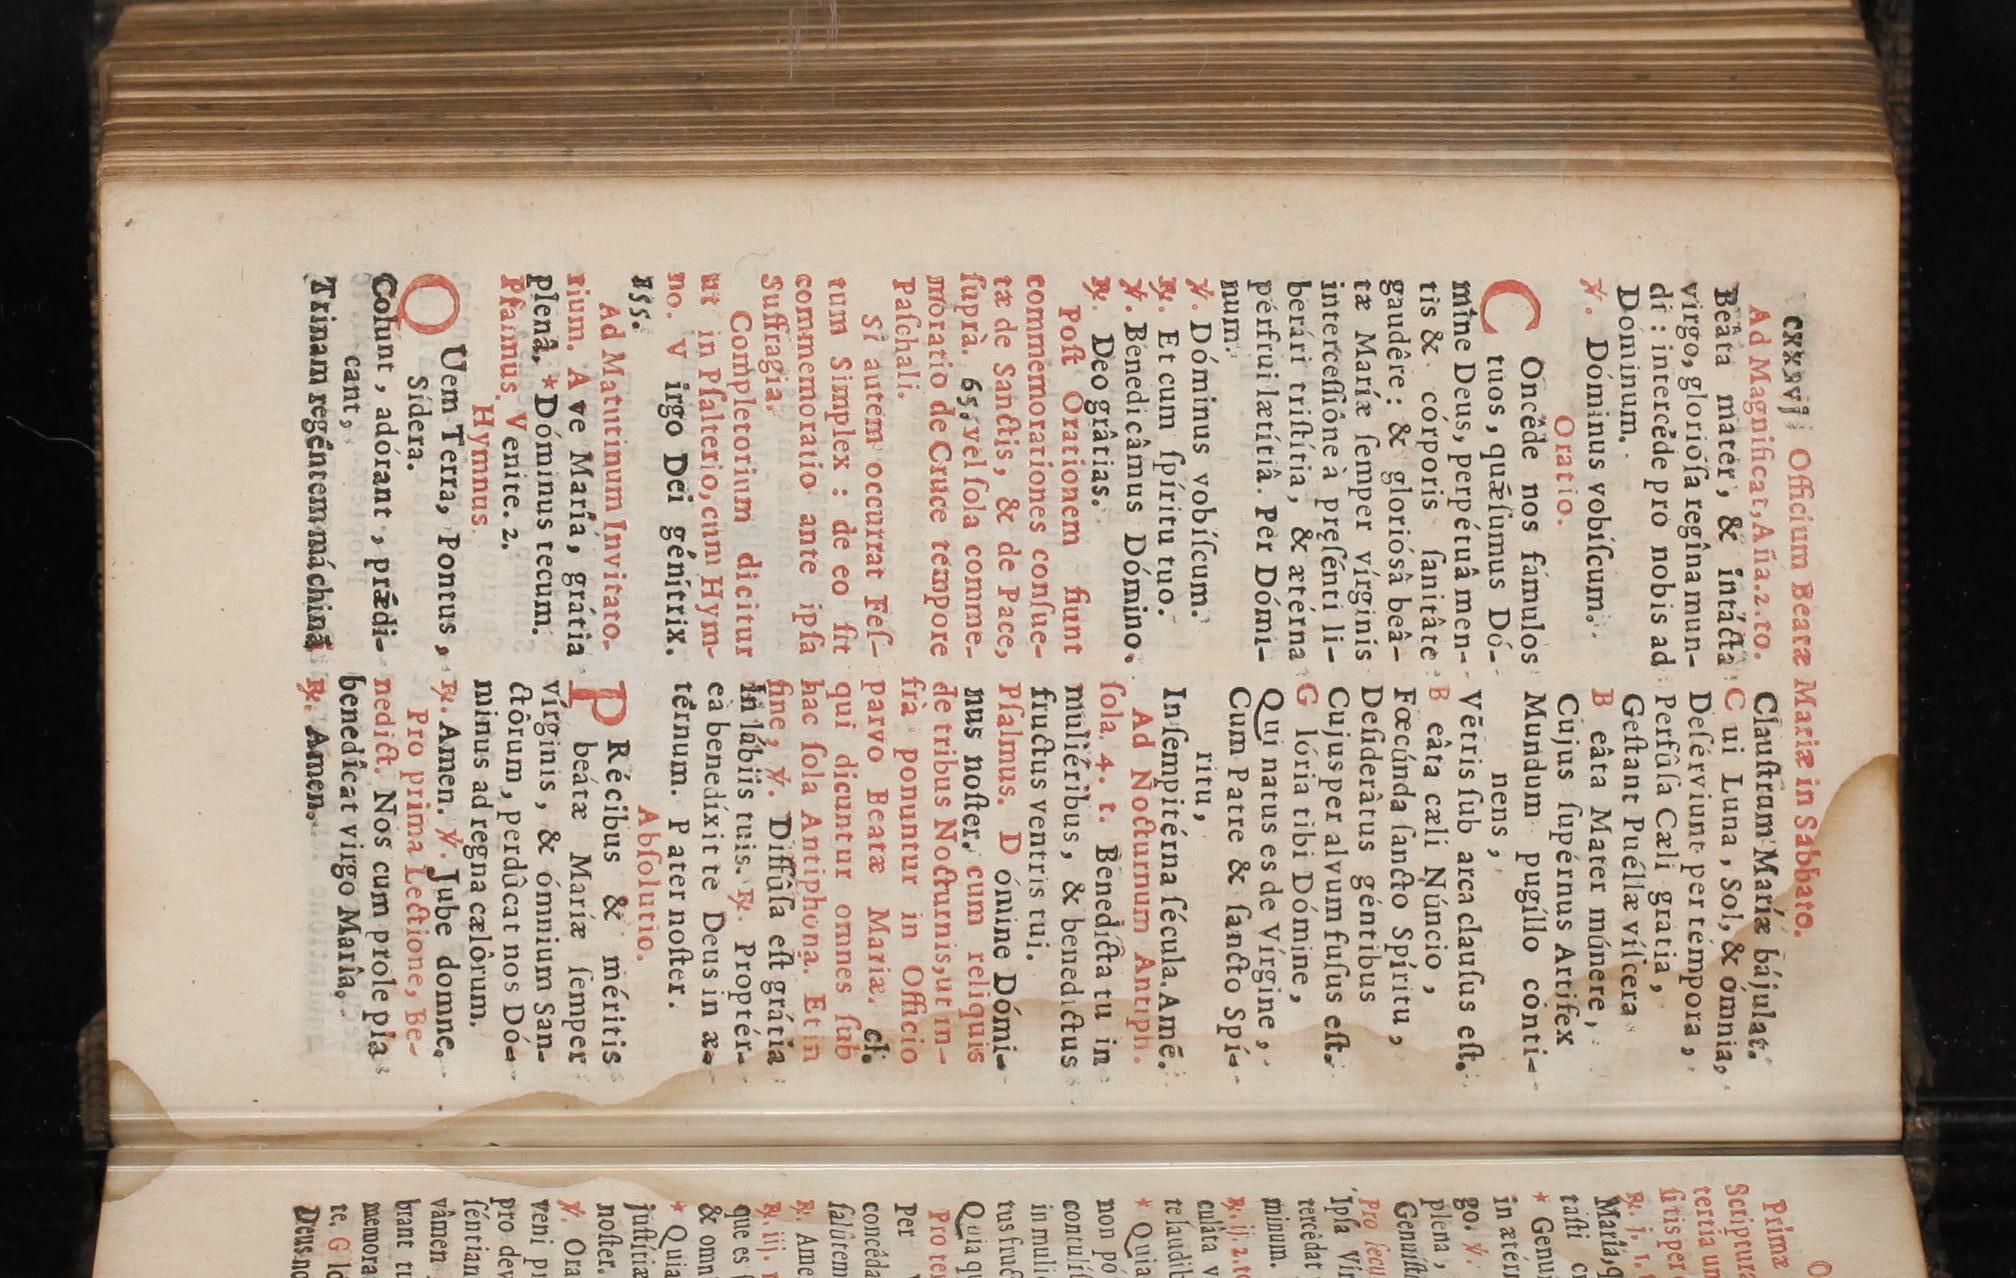 cxxvj Officium Beatæ Mariæ in Sabbato.
Ad Magnificat, Aña. 2. to.
Beâta mater, & intácta
virgo, gloriósa regîna mun-
di : intercêde pro nobis ad
Dominum.
℣. Dóminus vobíſcum.
Oratio.
COncêde nos fámulos
tuos, quǽſumus Dó-
mine Deus, perpétuâ men-
tis & córporis ſanitâte
gaudêre : & gloriósâ beâ-
tæ Maríæ ſemper vírginis
interceſſiône à pręſénti li-
berári triſtítia, & ætérna
pérfrui lætítiâ. Per Dómi-
num.
℣. Dóminus vobíſcum.
℟. Et cum ſpíritu tuo.
℣. Benedicâmus Dómino.
℟. Deo grâtias.
Poſt Orationem fiunt
commemorationes conſue-
tæ de Sanctis, & de Pace,
ſuprà. 65. vel ſola comme-
moratio de Cruce tempore
Paſchali.
Si autem occurrat Feſ-
tum Simplex : de eo fit
commemoratio ante ipſa
Suffragia.
Completorium dicitur
ut in Pſalterio, cum Hym-
no. Virgo Dei génitrix.
155.
Ad Matutinum Invitato-
rium. Ave María, grátia
plenâ, * Dóminus tecum.
Pſalmus. Venite. 2.
Hymnus.
QUem Terra, Pontus,
Sídera.
Colunt, adórant, prǽdi-
cant,
Trinam regéntem máchinã
Clauſtrum Maríæ bájulat.
Cui Luna, Sol, & omnia,
Deſérviunt per témpora,
Perfûſa Cæli gratia,
Geſtant Puéllæ víſcera
Beâta Mater múnere,
Cujus ſupérnus Artifex
Mundum pugíllo conti-
nens,
Vẽtris ſub arca clauſus eſt.
Beâta cæli Núncio,
Fœcúnda ſancto Spíritu,
Deſiderâtus géntibus
Cujus per alvum fuſus eſt.
Glória tibi Dómine,
Qui natus es de Vírgine,
Cum Patre & ſancto Spí-
ritu,
In ſempitérna ſécula. Amẽ.
Ad Nocturnum Antiph.
ſola. 4. t. Benedicta tu in
muliéribus, & benedictus
fructus ventris tui.
Pſalmus. Dómine Dómi-
nus noſter. cum reliquis
de tribus Nocturnis, ut in-
frà ponuntur in Officio
parvo Beatæ Mariæ. cl.
qui dicuntur omnes ſub
hac ſola Antiphona. Et in
fine, ℣. Diffûſa eſt grátia
in lábiis tuis. ℟. Proptér-
eà benedíxit te Deus in æ-
térnum. Pater noſter.
Abſolutio.
PRécibus & méritis
beátæ Maríæ ſemper
vírginis, & ómnium San-
ctôrum, perdûcat nos Dó-
minus ad regna cælôrum.
℟. Amen. ℣. Jube domne.
Pro prima Lectione, Be-
nedict. Nos cum prole pia
benedîcat virgo María.
℟. Amen.
Primæ
Scripturæ
tertia un
ſitis per
℟. j. 1.
María, q
raſti c
* Genui
in ætér
go. ℣.
plena,
Genuíſti
Pro ſecu
Ipſa Vir
tercêdat
minum.
℟. ij. 2. to
culâta v
te laudib
* Quia
non pó
contulíſ
in muli
tus fruc
Quia qu
Pro ter
Per
concêda
ſalûtem
℟. Ame
℟. iij.
que es
& omn
* Quia
juſtítiæ
noſter.
℣. Ora
veni pr
pro dev
ſéntian
vâmen
brant tu
memora
te. Glo
Deus no